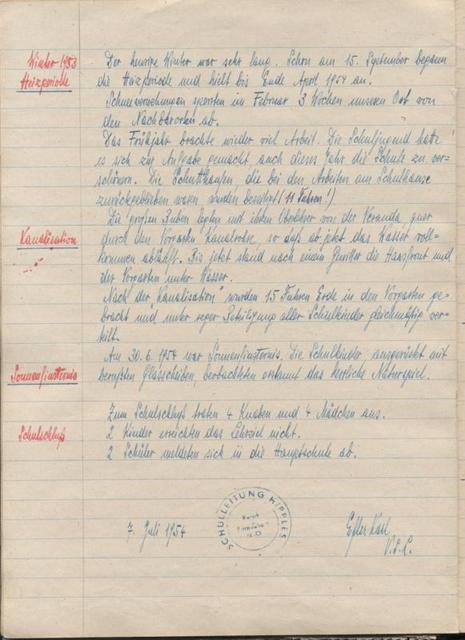 Winter 1953
Heizperiode
Der heurige Winter war sehr lang. Schon am 15. September begann
die Heizperiode und hielt bis Ende April 1954 an.
Schneeverwehungen sperrten im Februar 3 Wochen unseren Ort von
den Nachbarorten ab.
Das Frühjahr brachte wieder viel Arbeit. Die Schuljugend hatte
es sich zur Aufgabe gemacht auch dieses Jahr die Schule zu ver-
schönern. Die Schutthaufen die bei den Arbeiten am Schulhause
zurückgeblieben waren wurden beseitigt (11 Fuhren!)
Kanalisation
Die großen Buben legten mit ihrem Oberlehrer von der Veranda quer
durch den Vorgarten Kanalrohre, so daß ab jetzt das Wasser voll-
kommen abläuft. Bis jetzt stand nach einem Gewitter die Hausfront und
der Vorgarten unter Wasser.
Nach der Kanalisation wurden 15 Fuhren Erde in den Vorgarten ge-
bracht und unter reger Beteiligung aller Schulkinder gleichmäßig ver-
teilt.
Sonnenfinsternis
Am 30. 6. 1954 war Sonnenfinsternis. Die Schulkinder, ausgerüstet mit
berußten Glasscheiben beobachteten erstaunt das herrliche Naturspiel.
Schulschluß
Zum Schulschluß traten 4 Knaben und 4 Mädchen aus.
2 Kinder erreichten das Lehrziel nicht.
2 Schüler meldeten sich in die Hauptschule ab.
7. Juli 1954
SCHULLEITUNG NIPPLES